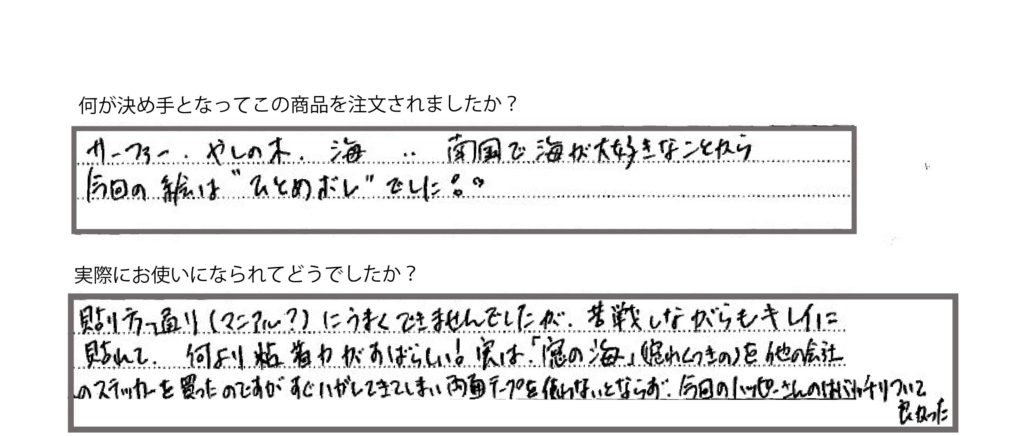 何が決め手となってこの商品を注文されましたか？
サーファー、やしの木、海 ‥ 南国で海が大好きなことから
今回の絵は"ひとめボレ"でした!。
実際にお使いになられてどうでしたか？
貼り方通り(マニアル?)にうまくできませんでしたが、苦戦しながらもキレイに
貼れて、何より粘着力がすばらしい!実は、「窓の海」の他の会社
のステッカーを買ったのですがすぐハガレてきてしまい両面テープを使わないとならず、今回のハッピーさんのはバッチリついて
良かった